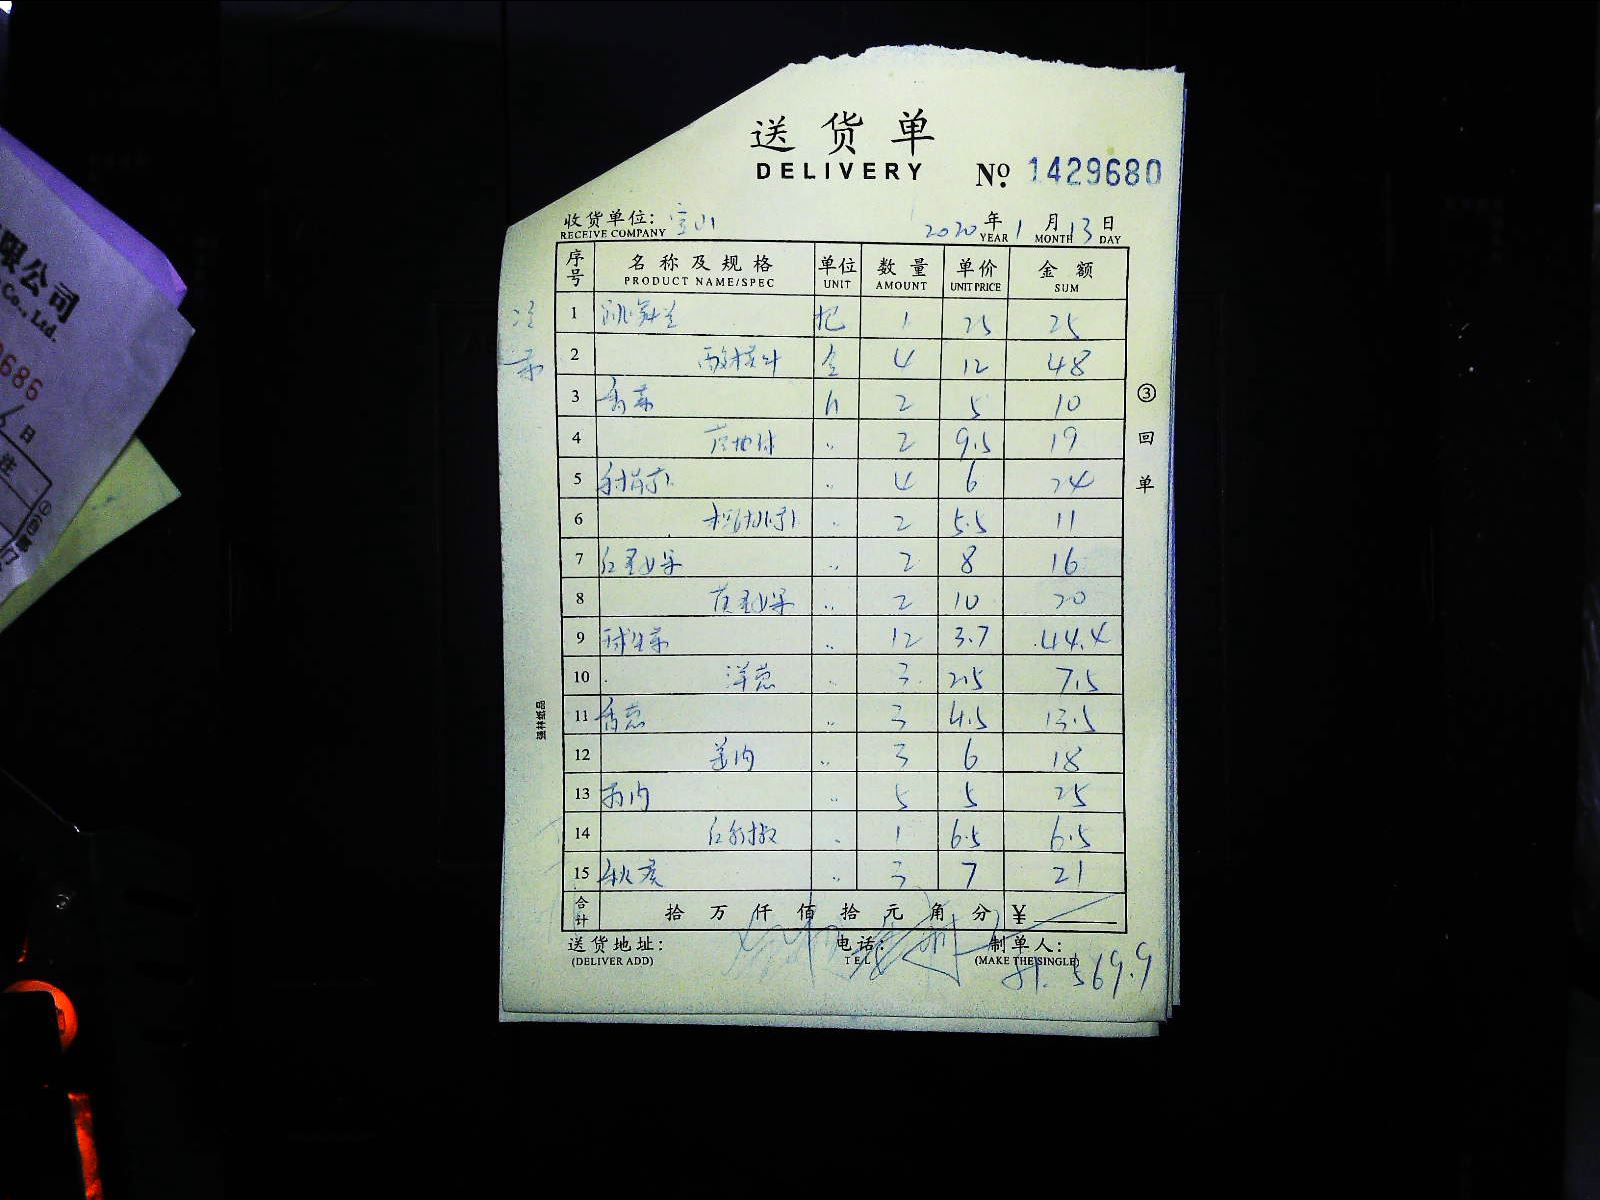 送货单
DELIVERY
No. 1429680
收货单位: 宝山 2020年1月13日
RECEIVE COMPANY YEAR MONTH DAY
序号 名称及规格 单位 数量 单价 金额
PRODUCT NAME/SPEC UNIT AMOUNT UNIT PRICE SUM
1 跳舞兰 把 1 25 25
2 4 12 48
3 香菜 斤 2 5 10
4 〃 2 9.5 19
5 〃 4 6 24
6 〃 2 5.5 11
7 〃 2 8 16
8 〃 2 10 20
9 球生菜 〃 12 3.7 44.4
10 洋葱 〃 3 2.5 7.5
11 香葱 〃 3 4.5 13.5
12 姜肉 〃 3 6 18
13 〃 5 5 25
14 〃 1 6.5 6.5
15 秋葵 〃 3 7 21
合计 拾万仟佰拾元角分 ¥
送货地址: 电话: 制单人:
(DELIVER ADD) TEL (MAKE THE SINGLE)
569.9
③回单
强林纸品
限公司
Co., Ltd.
686
6日
注